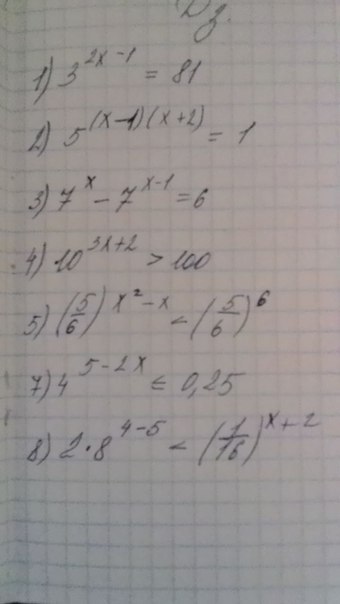 Дз.
1) 3^{2x-1} = 81
2) 5^{(x-1)(x+2)} = 1
3) 7^{x} - 7^{x-1} = 6
4) 10^{3x+2} > 100
5) (5/6)^{x²-x} < (5/6)^{6}
7) 4^{5-2x} ≤ 0,25
8) 2·8^{4-5} < (1/16)^{x+2}